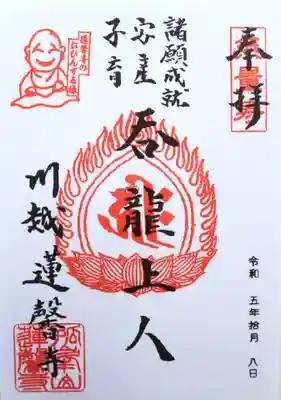 奉拝
諸願成就
安産
子育
呑龍上人
川越 蓮馨寺
蓮馨寺の
おびんずる様
令和 五年拾月 八日